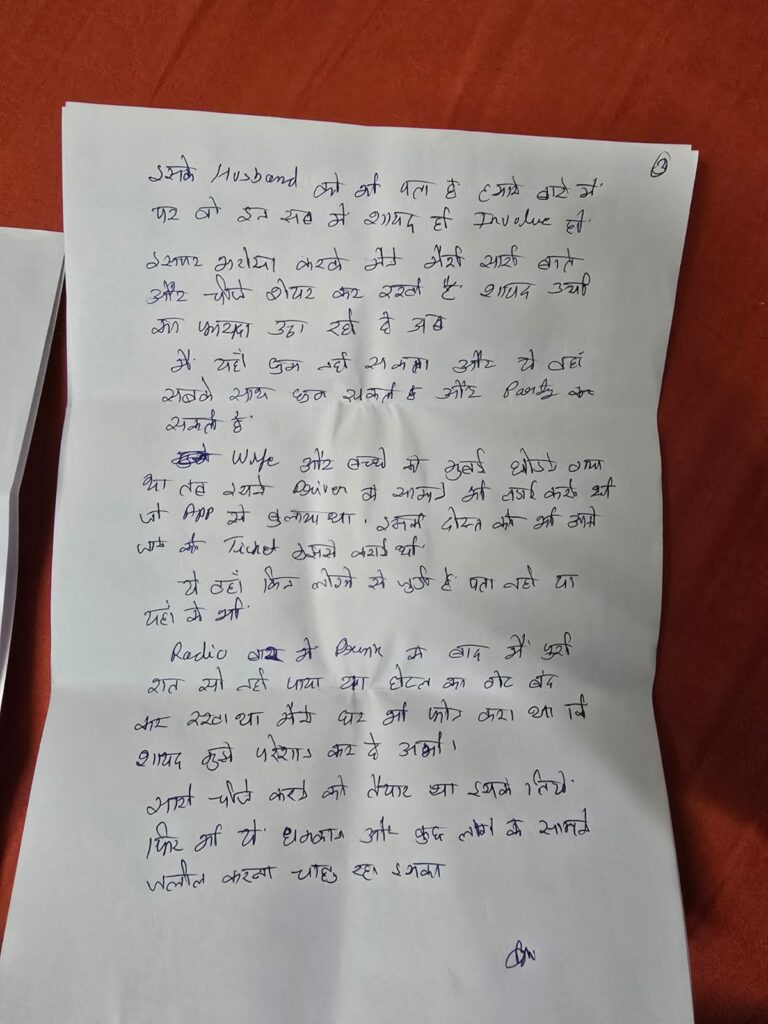 3
इसके Husband को भी पता है हमारे बारे में
पर वो इन सब मे शायद ही Involve हो
इसपर भरोसा करके मैने मेरी सारी बाते
और चीजे शेयर कर रखी है शायद उसी
का फायदा उठा रहे है अब
मैं यहाँ घुम नही सकता और ये वहाँ
सबके साथ घुम सकती है और Party कर
सकती है
Wife और बच्चे को मुंबई छोडने गया
था तब इसने Driver के सामने भी करी थी
जो App से बुलाया था. इसकी दोस्त को भी आने
जाने की Ticket कराई थी
ये वहाँ किन लोगो से जुडी है पता नही या
यहाँ से भी
Radio बार में Drink के बाद मैं पुरी
रात सो नही पाया था होटल का गेट बंद
कर रखा था मैने घर भी फोन करा था कि
शायद मुझे परेशान कर दे अभी।
सारी चीजे करने को तैयार था इसके लिये
फिर भी ये धमकाना और कुछ लोगो के सामने
जलील करना चाह रहा इसका